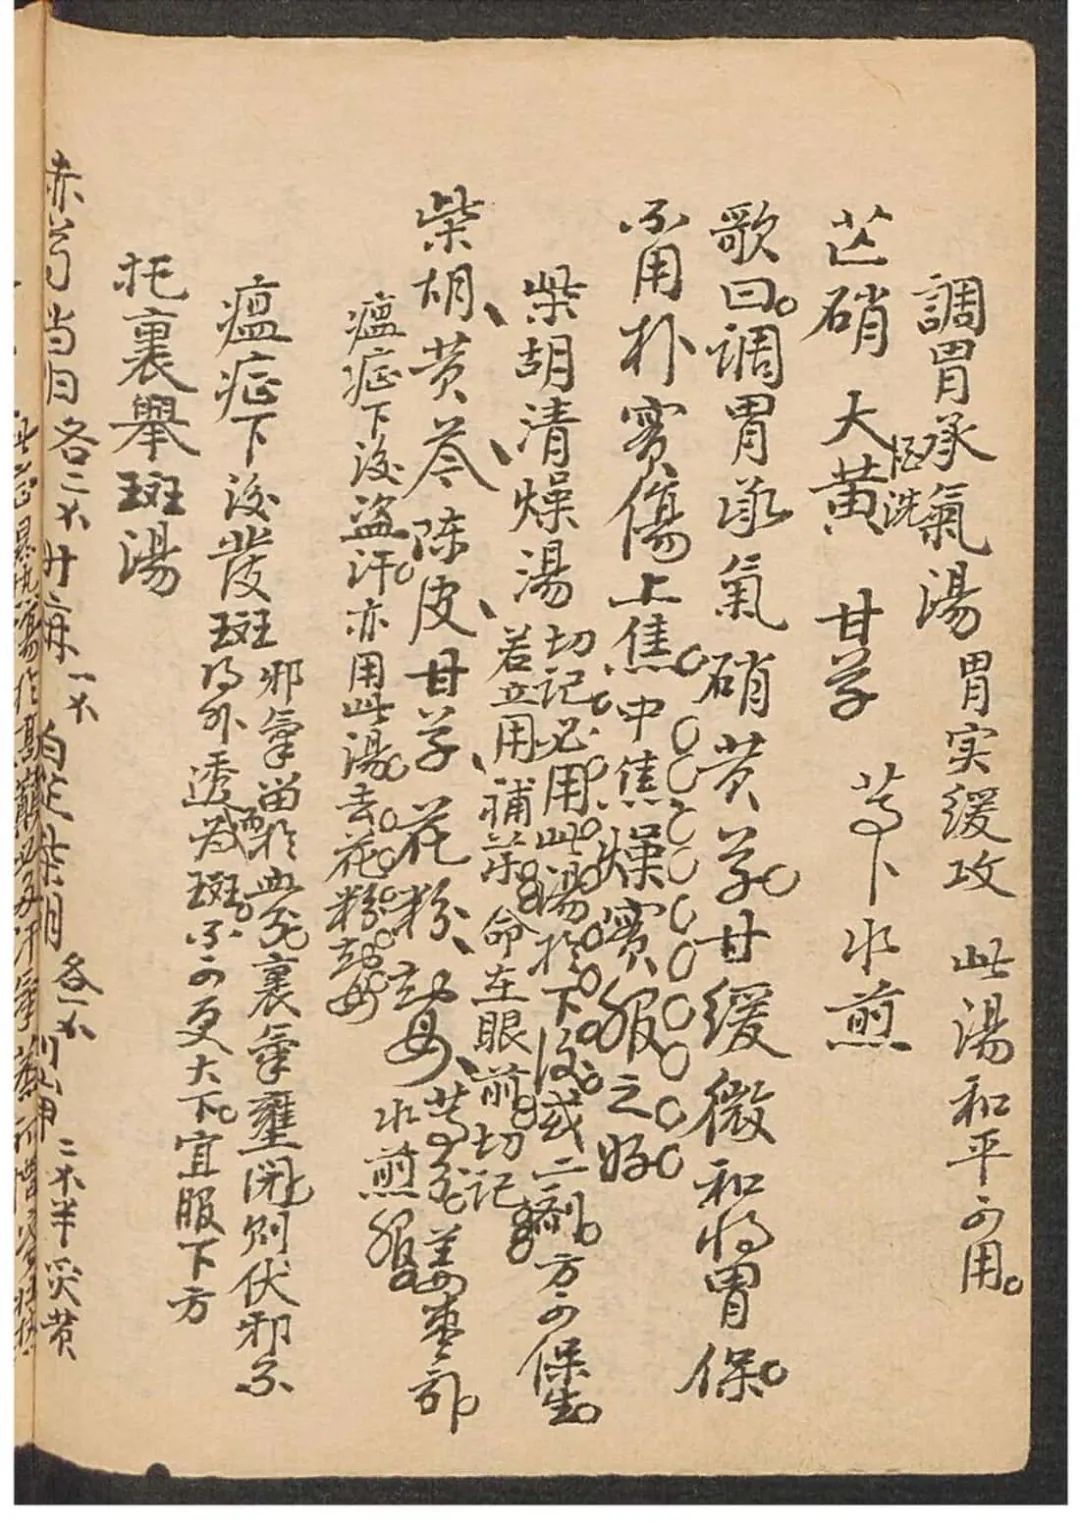 調胃承氣湯 胃实缓攻 此湯和平可用。
芒硝 大黄 酒洗 甘草 等下水煎
歌曰。调胃承氣硝黄草。甘缓微和将胃保。
不用朴實傷上焦。中焦燥實服之好
柴胡清燥湯 切记必用此湯於下後。或二劑。方可保生。
若立用補藥。命在眼前。切记
柴胡、黄芩、陈皮、甘草 花粉、知母、等分。姜枣引。
水煎服
瘟症下後盗汗。亦用此湯。去花粉知母
瘟症下後發斑 邪氣留於血分。裏氣壅闭。则伏邪不
得外透而為斑。不可更大下。宜服下方
托裏舉斑湯
赤芍 当归 各二不 升麻 一不 白芷 柴胡 各一不 川山甲 二不半 炙黄